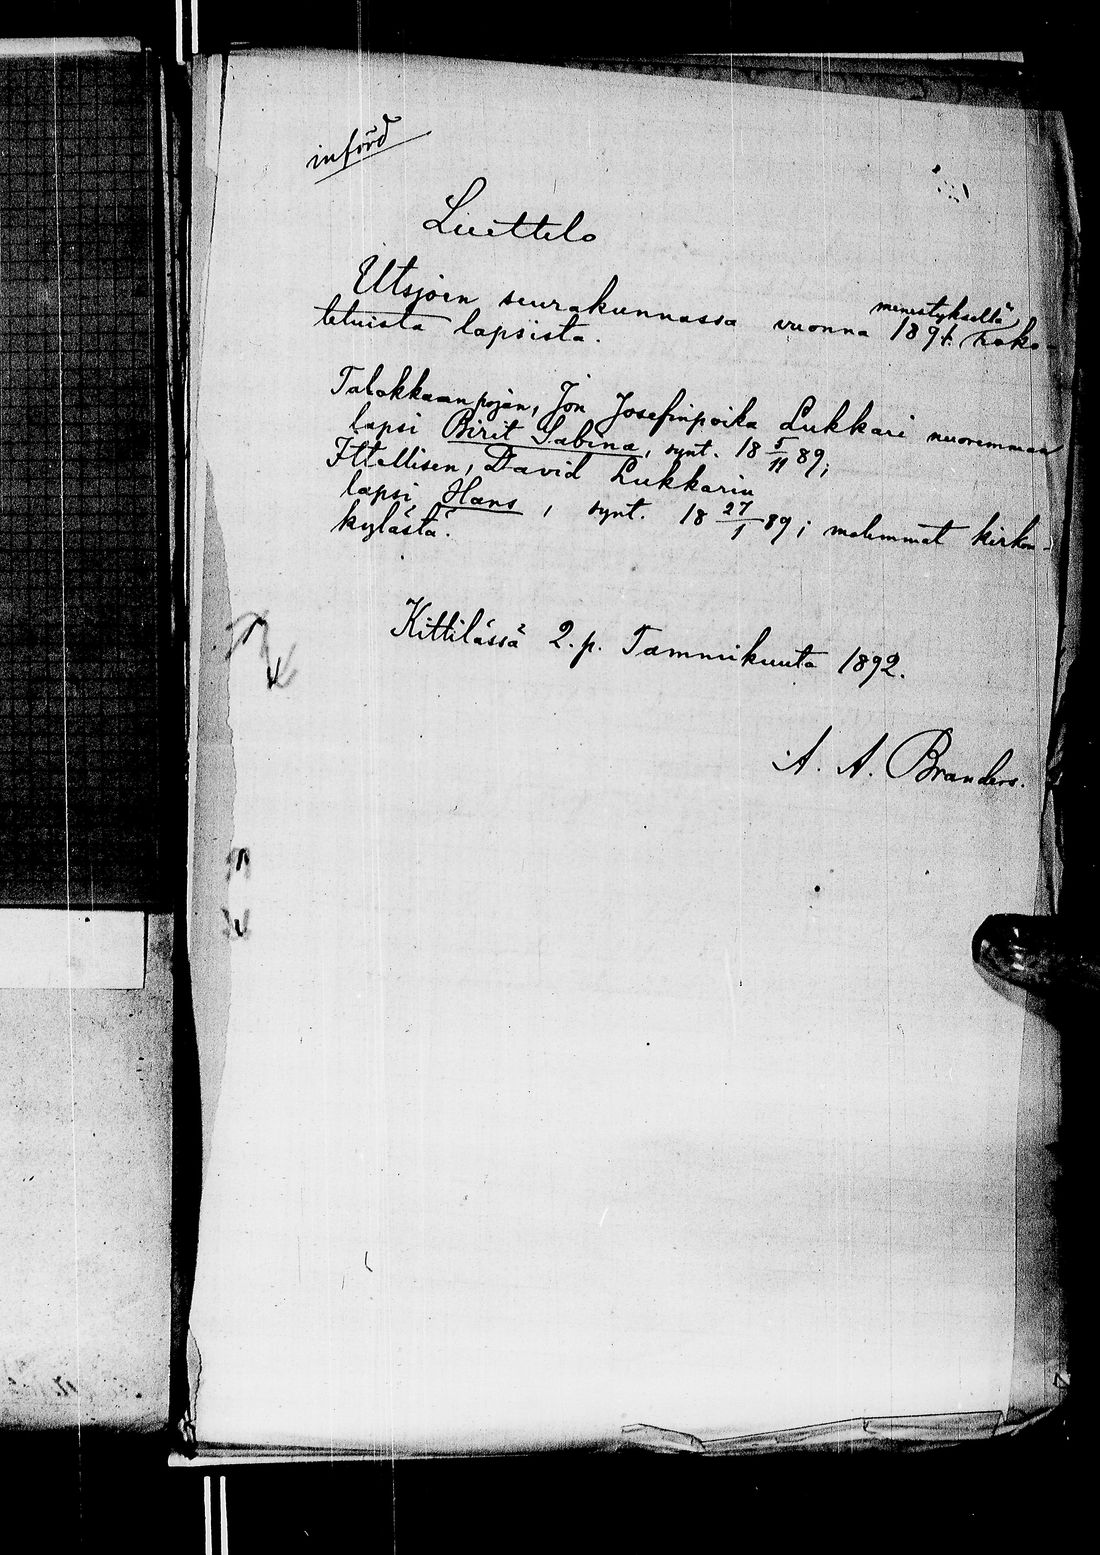 införd
Luettelo
Utsjoen seurakunnassa vuonna 1891 menestyksellä roko-
tetuista lapsista.
Talokkaan pojan, Jon Josefinpoika Lukkari nuoremman
lapsi Birit Sabina, synt. 18 5/11 89;
Ittellisen, David Lukkarin
lapsi Hans, synt. 18 27/1 89; molemmat kirkon-
kylästä.
Kittilässä 2. p. Tammikuuta 1892.
A. A. Branders.